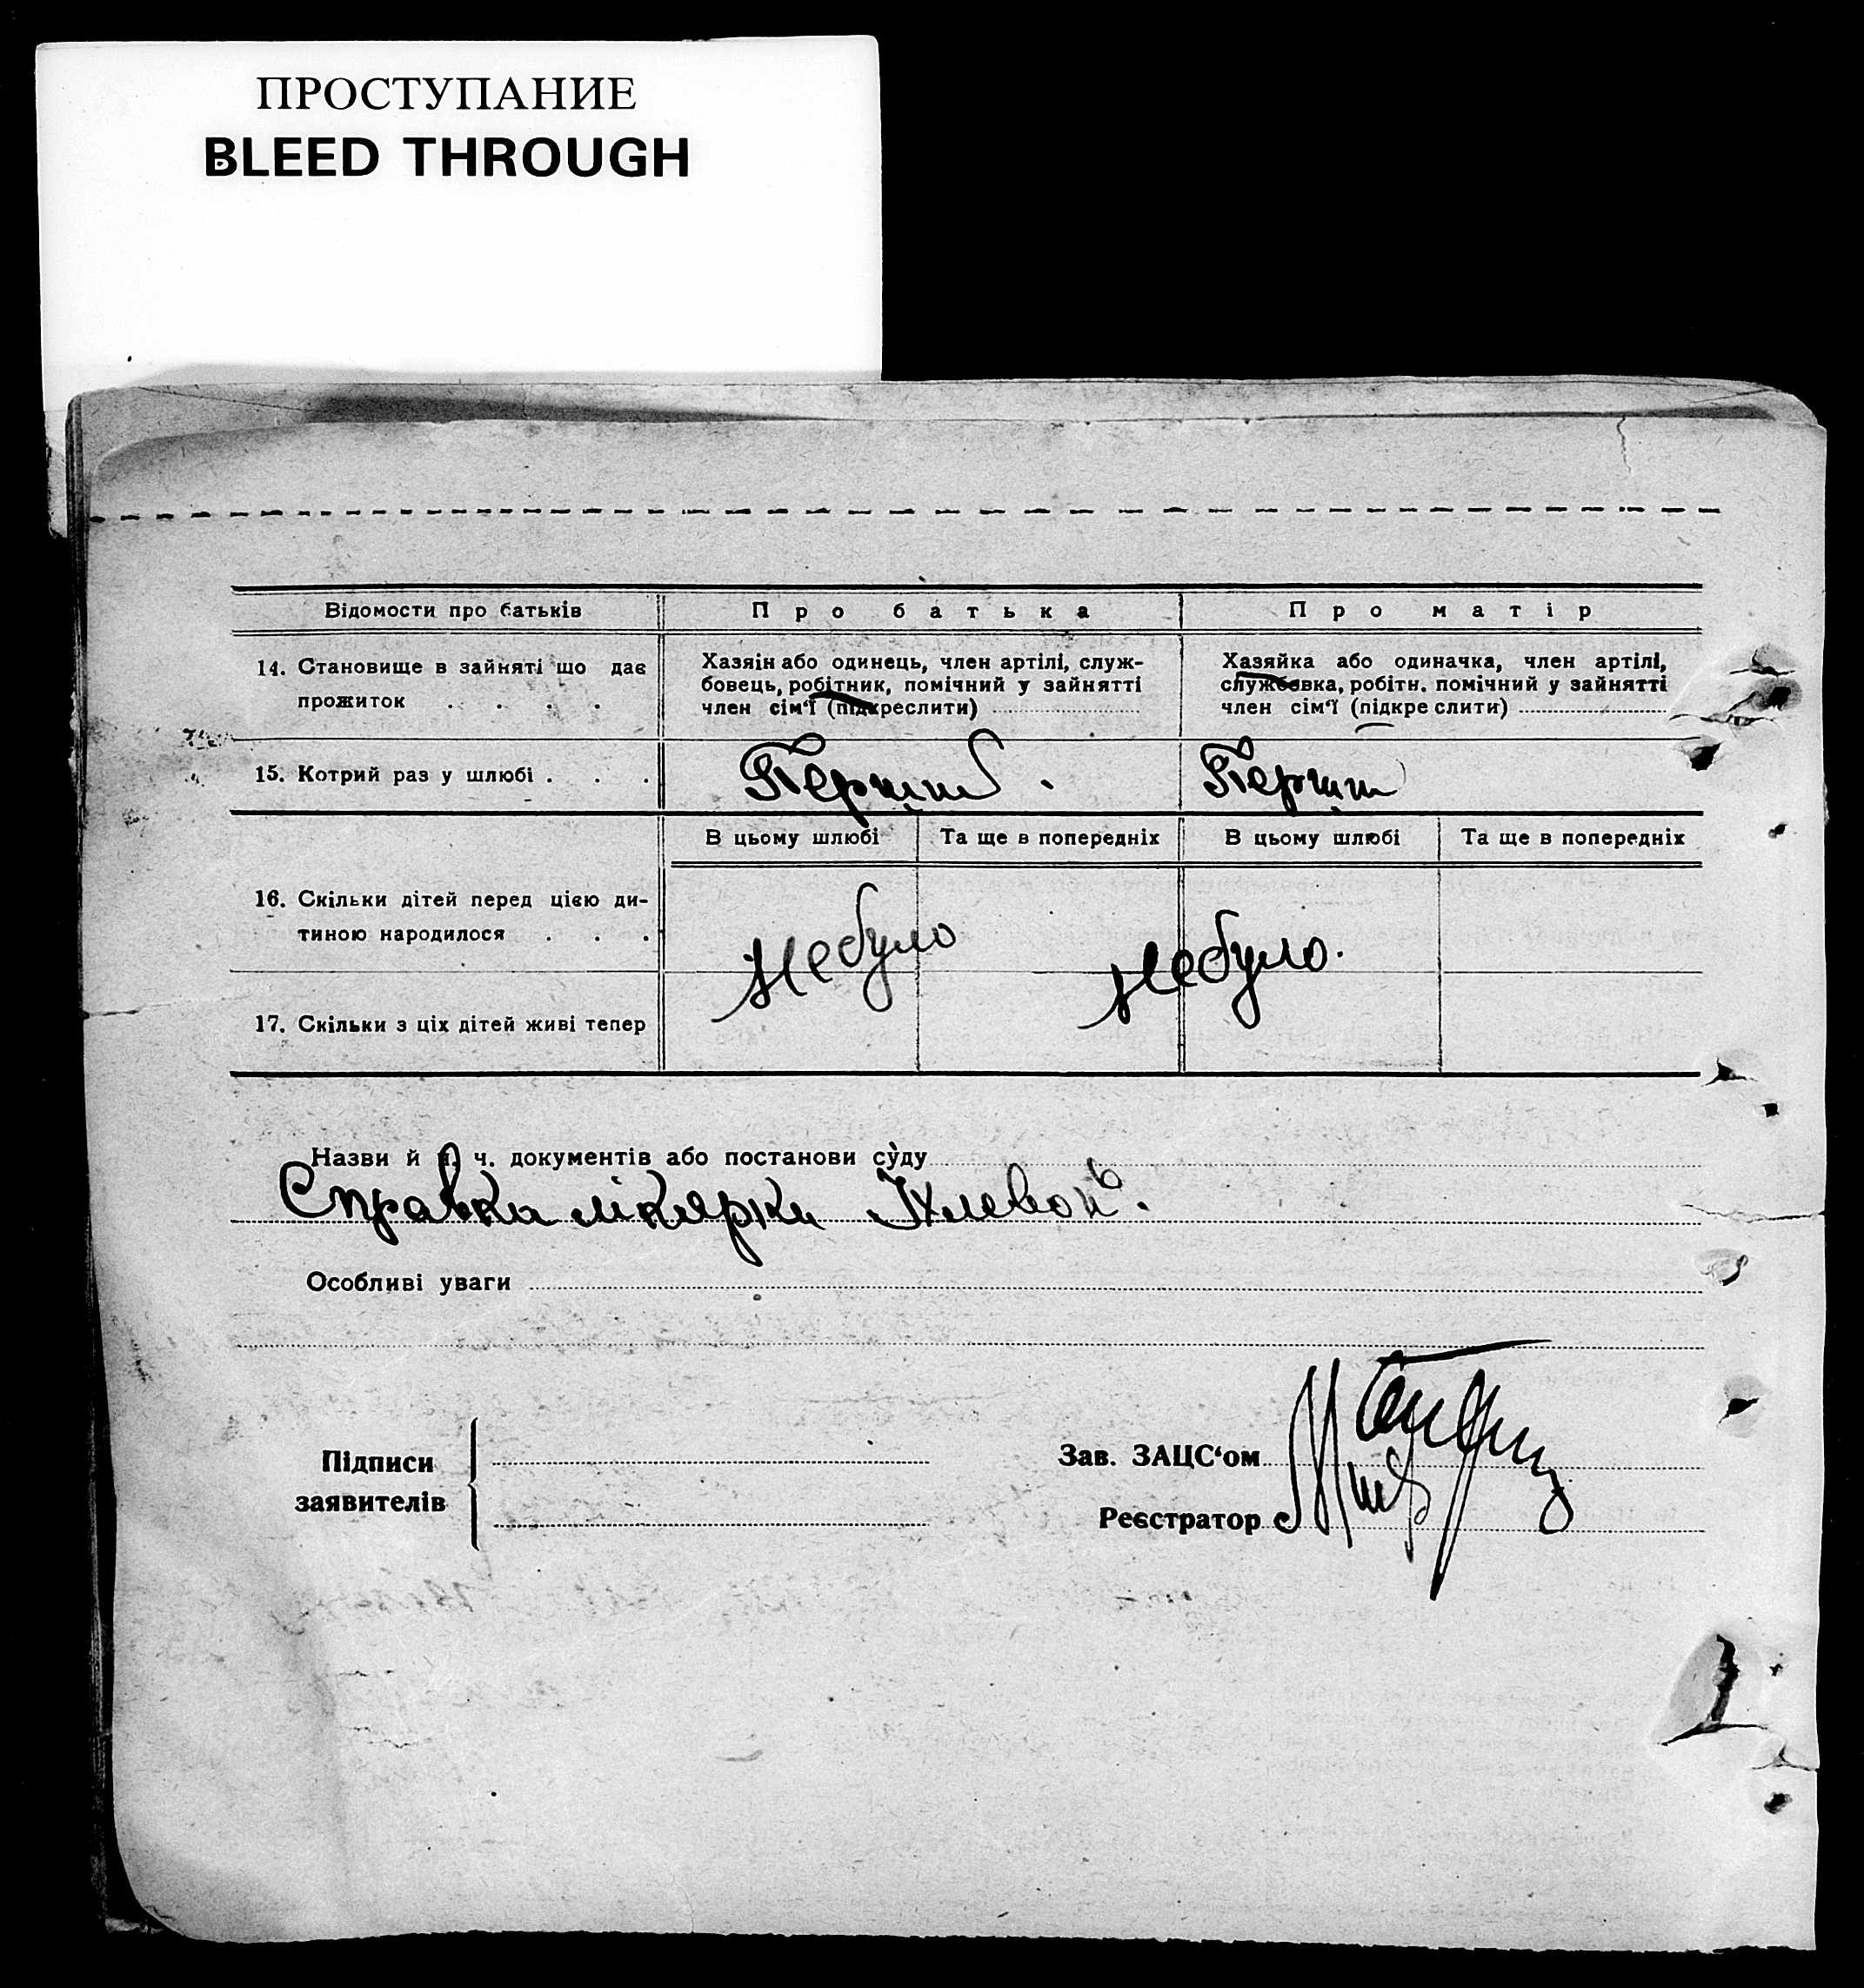 ПРОСТУПАНИЕ
BLEED THROUGH
Відомости про батьків
Про батька
Про матір
14. Становище в зайняті що дає
прожиток . . . .
Хазяін або одинець, член артілі, служ-
бовець, робітник, помічний у зайнятті
член сім'ї (підкреслити)
Хазяйка або одиначка, член артілі,
службовка, робітн. помічний у зайнятті
член сім'ї (підкреслити)
15. Котрий раз у шлюбі . . .
Перший.
Перший
В цьому шлюбі
Та ще в попередніх
В цьому шлюбі
Та ще в попередніх
16. Скільки дітей перед цією ди-
тиною народилося . . .
Небуло
Небуло.
17. Скільки з ціх дітей живі тепер
Назви й н. ч. документів або постанови суду
Справка лікарки
Особливі уваги
Підписи
заявителів
Зав. ЗАЦС'ом
Реєстратор